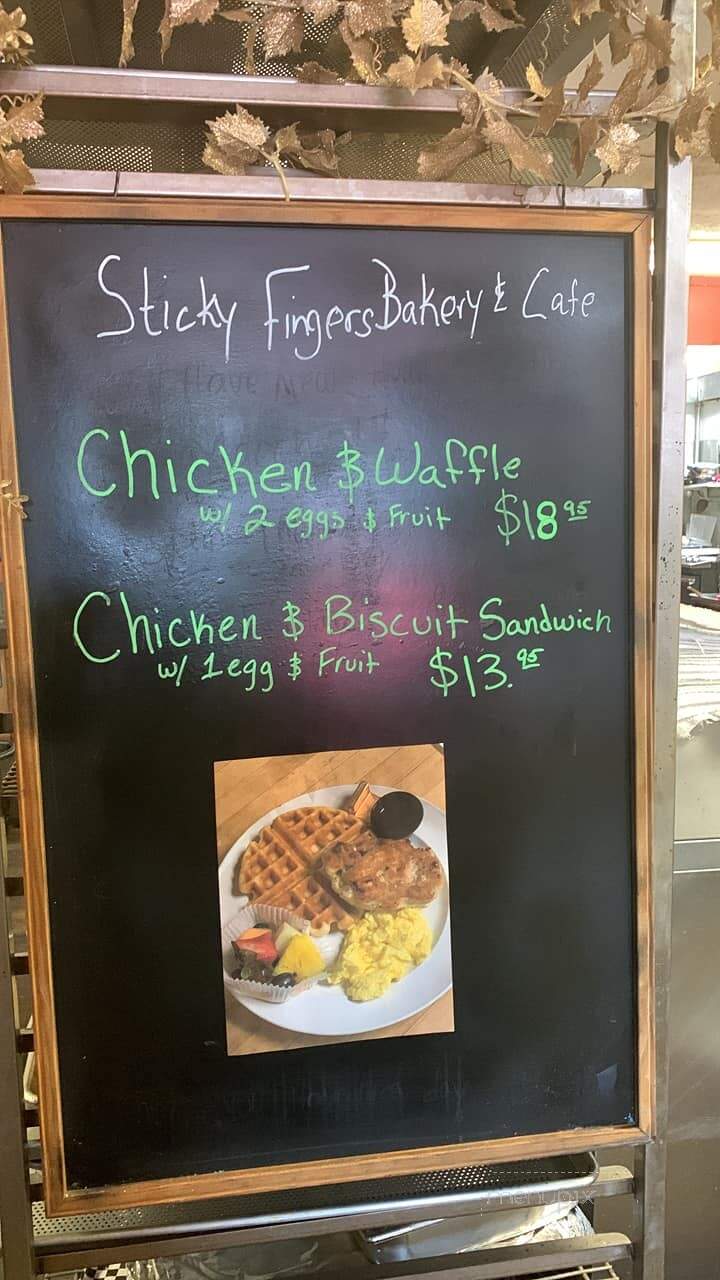 Sticky Fingers Bakery & Cafe
Chicken & Waffle
w/ 2 eggs & Fruit $18 95
Chicken & Biscuit Sandwich
w/ 1 egg & Fruit $13.95
menupix